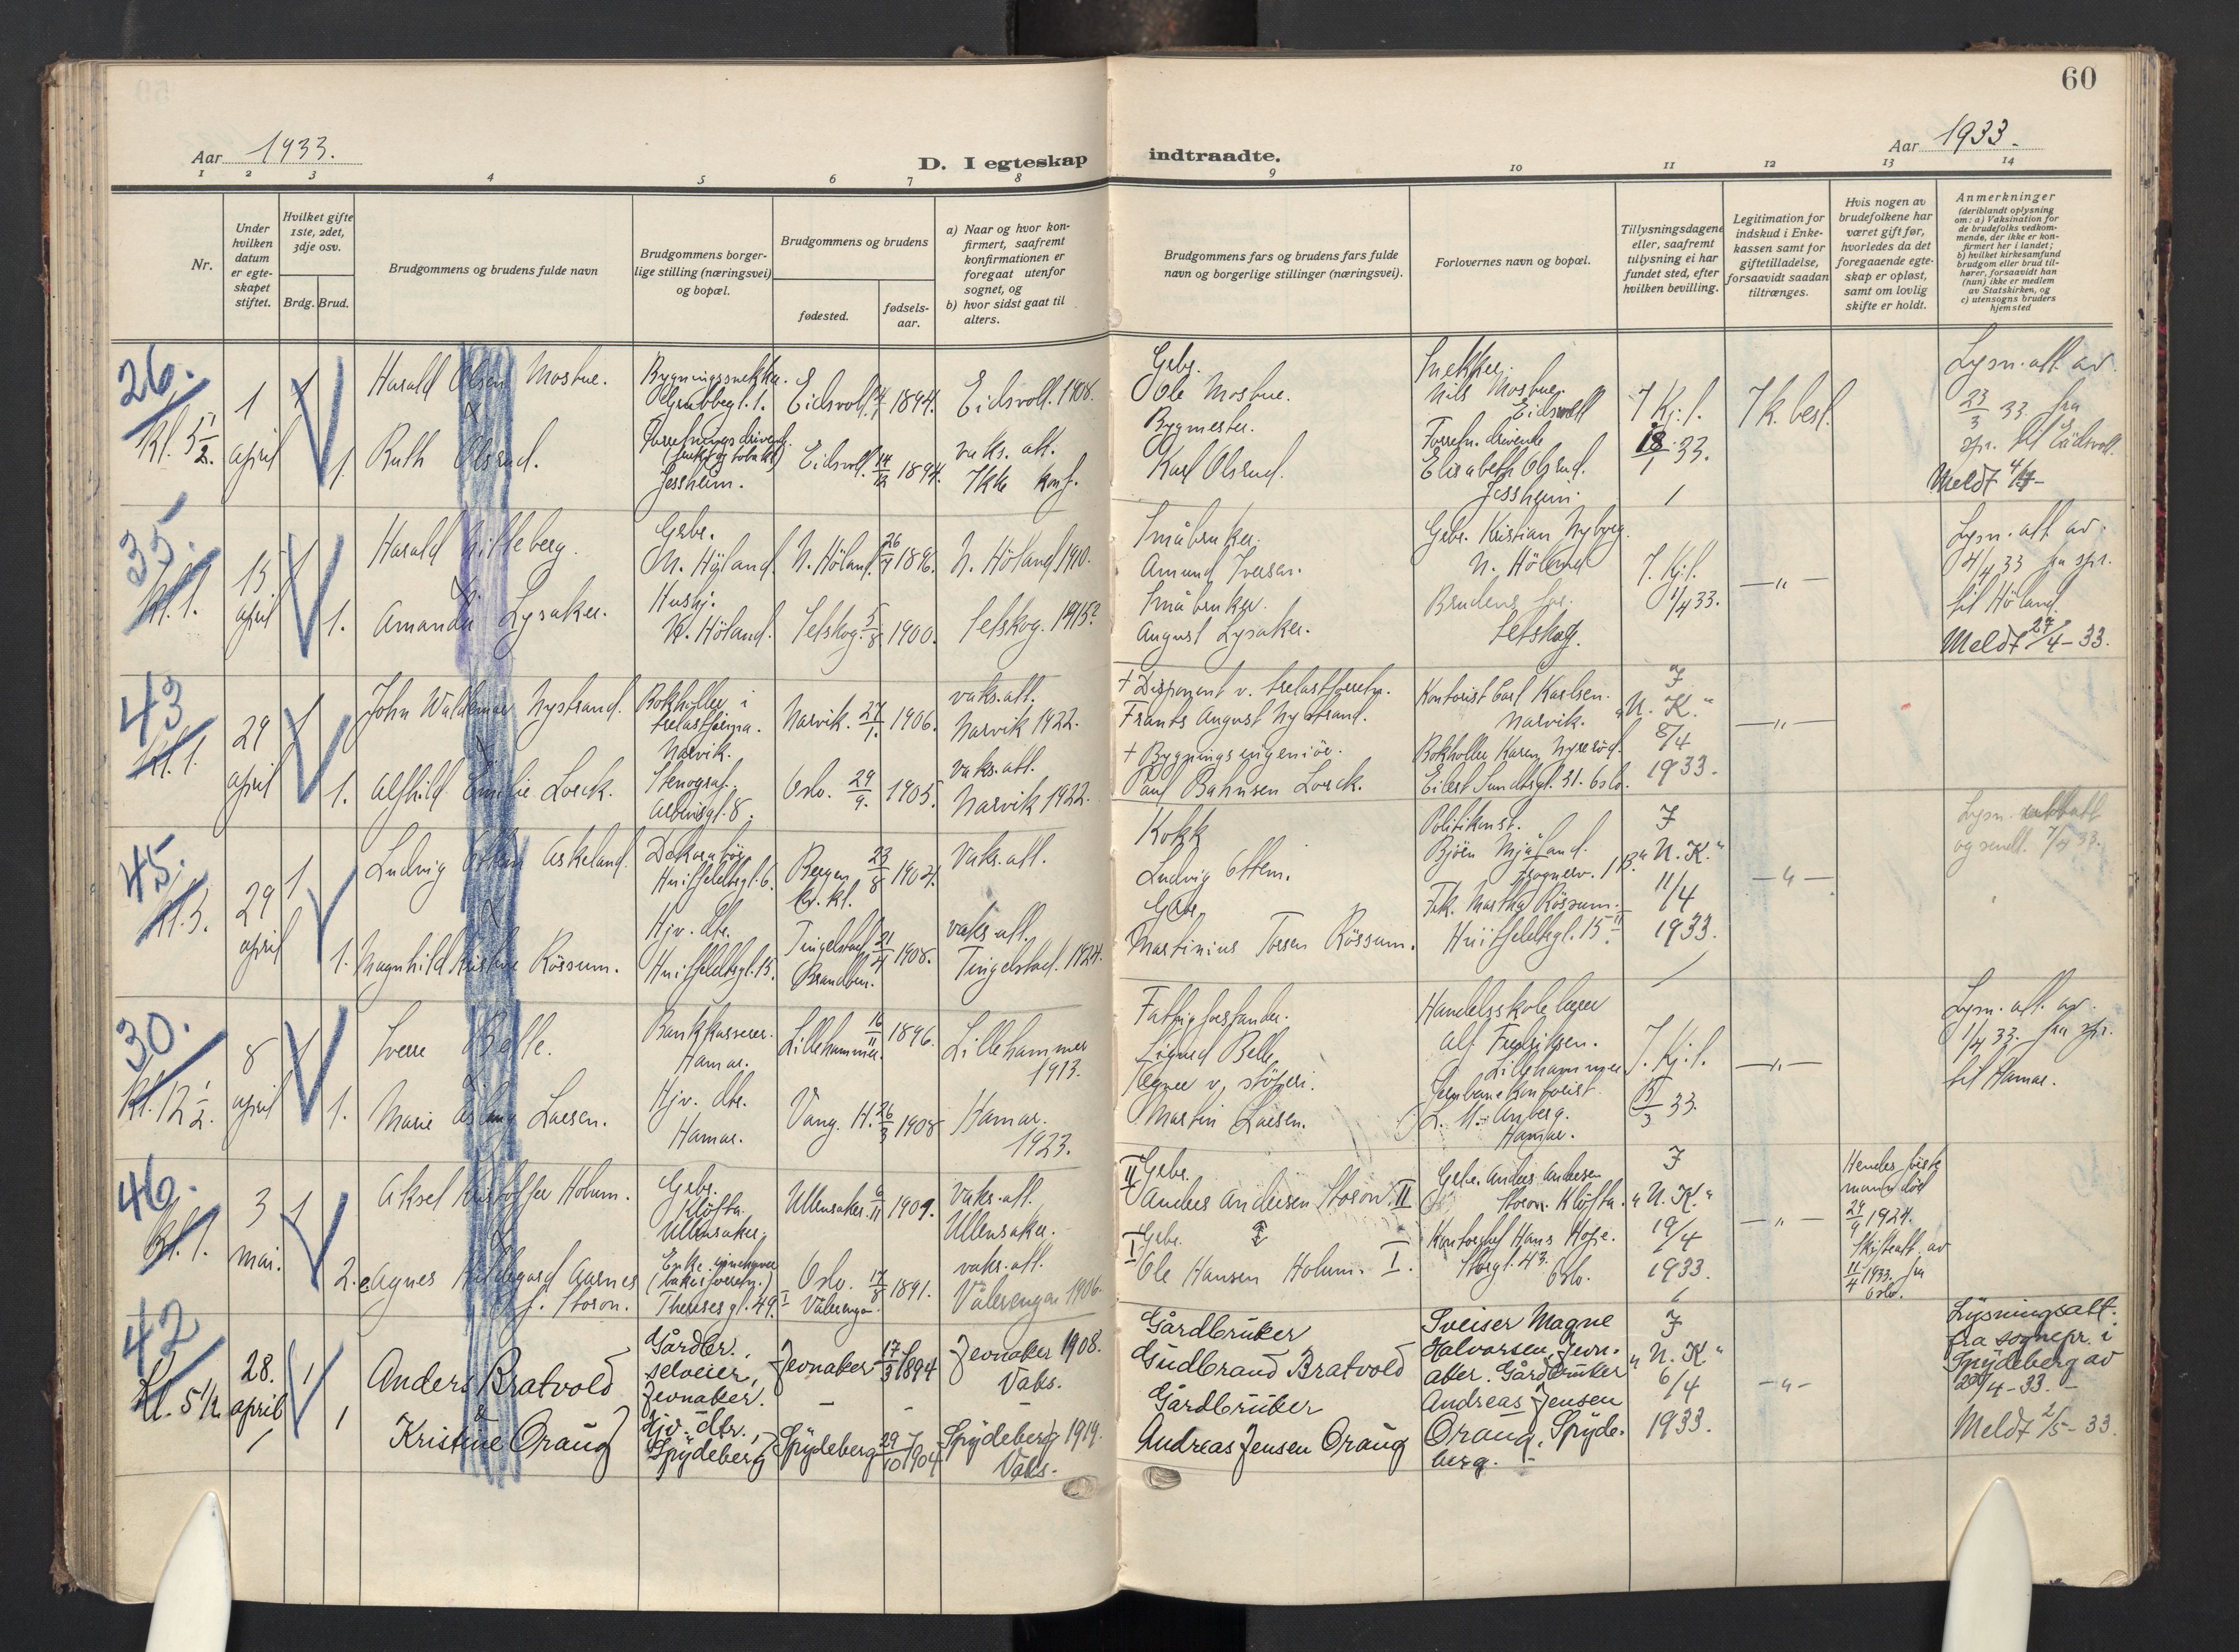 60
Aar 1933.
D. I egteskap
indtraadte.
Aar 1933.
1 2 3 4 5 6 7 8 9 10 11 12 13 14
Nr.
Under hvilken datum er egte-skapet stiftet.
Hvilket gifte 1ste, 2det, 3dje osv.
Brdg. Brud.
Brudgommens og brudens fulde navn
Brudgommens borger-lige stilling (næringsvei) og bopæl.
Brudgommens og brudens
fødested.
fødsels-aar.
a) Naar og hvor kon-firmert, saafremt konfirmationen er foregaat utenfor sognet, og
b) hvor sidst gaat til alters.
Brudgommens fars og brudens fars fulde navn og borgerlige stillinger (næringsvei).
Forlovernes navn og bopæl.
Tillysningsdagene eller, saafremt tillysning ei har fundet sted, efter hvilken bevilling.
Legitimation for indskud i Enke-kassen samt for giftetilladelse, forsaavidt saadan tiltrænges.
Hvis nogen av brudefolkene har været gift før, hvorledes da det foregaaende egte-skap er opløst, samt om lovlig skifte er holdt.
Anmerkninger
(deriblandt oplysning om: a) Vaksination for de brudefolks vedkom-mende, der ikke er kon-firmert her i landet; b) hvilket kirkesamfund brudgom eller brud til-hører, forsaavidt han (hun) ikke er medlem av Statskirken, og c) utensogns bruders hjemsted
26. Kl. 5 1/2.
1 april
1
1.
Harald Olsen Mosbue.
&
Ruth Olsrud.
Bygningssnekker.
Grubbegt. 1.
Jessheim.
Eidsvoll. 1894.
Eidsvoll. 14/12 1894.
Eidsvoll. 1908.
vaks. att.
Ikke konf.
Grbr.
Ole Mosbue.
Bygmester.
Karl Olsrud.
Snekker.
Nils Mosbue,
Eidsvoll
Forretn. drivende
Elisabeth Olsrud.
Jessheim.
7 Kj. l.
18/1 33.
7 k. best.
Lysn. att. av
23/3 33. fra
spr. til Eidsvoll.
Meldt 4/4-
35. Kl. 1.
15 april
1
1.
Harald Nitteberg.
&
Amanda Lysaker.
Grbr.
N. Höland.
Hushj.
N. Höland.
N. Höland. 26/4 1896.
Setskog. 5/8 1900.
N. Höland 1910.
Setskog. 1915?
Småbruker.
Amund Iversen.
Småbruker.
August Lysaker.
Grbr. Kristian Nyborg.
N. Höland
Brudens far.
Setskog.
7. Kj. l.
1/4 33.
— " —
Lysn. att. av
4/4 33 fra spr.
til Höland.
Meldt 27/4 - 33.
43 Kl. 1.
29 april
1
1.
John Waldemar Nystrand.
&
Alfhild Emilie Lorck.
Bokholder i
trelastfirma.
Narvik.
Stenograf.
Narvik. 27/1. 1906.
Oslo. 29/9. 1905.
vaks. att.
Narvik 1922.
vaks. att.
Narvik 1922.
+ Disponent v. trelastforretn.
Frants August Nystrand.
+ Bygningsingeniör.
Paul Bahnsen Lorck.
Kontorist Carl Karlsen.
Narvik.
Bokholder Karen Nyreröd.
Eilert Sundtsgt. 31. Oslo.
I
"U. K."
8/4
1933.
— " —
45. Kl. 3.
29 april
1
1.
Ludvig Ottem Askeland.
&
Magnhild Kristine Rössum.
Dekoratör
Huitfeldtsgt. 6.
Hjv. dtr.
Huitfeldtsgt. 15.
Bergen 23/8 1904.
Tingelstad, 21/4 1908.
Brandbu.
Vaks. att.
vaks. att.
Tingelstad. 1924.
Kokk
Ludvig Ottem.
Grbr.
Martinius Torsen Rössum.
Politikonst.
Björn Mjåland.
Frk. Martha Rössum.
Huitfeldtsgt. 15 II.
I
"U. K."
11/4
1933.
— " —
og sendt. 7/4 33.
30. Kl. 12 1/2.
8 april
1
1.
Sverre Belle.
&
Marie Aslaug Larsen.
Bankkasserer.
Hamar.
Hjv. dtr.
Hamar.
Lillehammer. 16/11 1896.
Vang. H. 26/3 1908
Lillehammer
1913.
Hamar.
1923.
Fattigforstander.
Sigurd Belle.
v. stöperi.
Martin Larsen.
Handelsskolelærer
Alf Fredriksen.
Lillehammer
Jernbanekontorist
Hamar.
7. Kj. l.
— " —
Lysn. att. av
1/4 33. fra spr.
til Hamar.
46. Kl. 1.
3 mai.
1
2.
Aksel Kristoffer Holum.
&
Agnes Hildegard Aarnes
f. Storon.
Grbr.
Klöfta.
Ullensaker.
Enke. innehaver
Theresesgt. 49 I
Ullensaker. 6/11 1909.
Oslo. 17/8 1891.
Vålerenga.
Vaks. att.
Ullensaker.
vaks. att.
Vålerengen 1906.
II Grbr.
Anders Andersen Storon. II
I Grbr.
Ole Hansen Holum. I.
Grbr. Anders Andersen
Storon. Klöfta.
Kontorchef Hans Hofse.
Storgt. 43. Oslo.
I
"U. K."
19/4
1933.
— " —
Hendes förste
mann död
29/9 1924.
Skifteatt. av
11/4 1933. fra
Oslo.
42 Kl. 5 1/2.
28. april
1
1
Anders Bratvold
&
Kristine Oraug
Gårdbr.
selveier,
Jevnaker.
Hjv. dtr.
Spydeberg
Jevnaker 17/3 1894
Spydeberg 29/10 1904
Jevnaker 1908.
Vaks.
Spydeberg 1919.
Vaks.
Gårdbruker
Gudbrand Bratvold
Gårdbruker
Andreas Jensen Oraug
Sveiser Magne
Halvorsen, Jevn-
aker. Gårdbruker
Andreas Jensen
Oraug, Spyde-
berg.
I
"U. K."
6/4
1933.
- " -
Lysningsatt.
fra sognepr. i
Spydeberg av
/4-33.
Meldt 2/5 - 33.